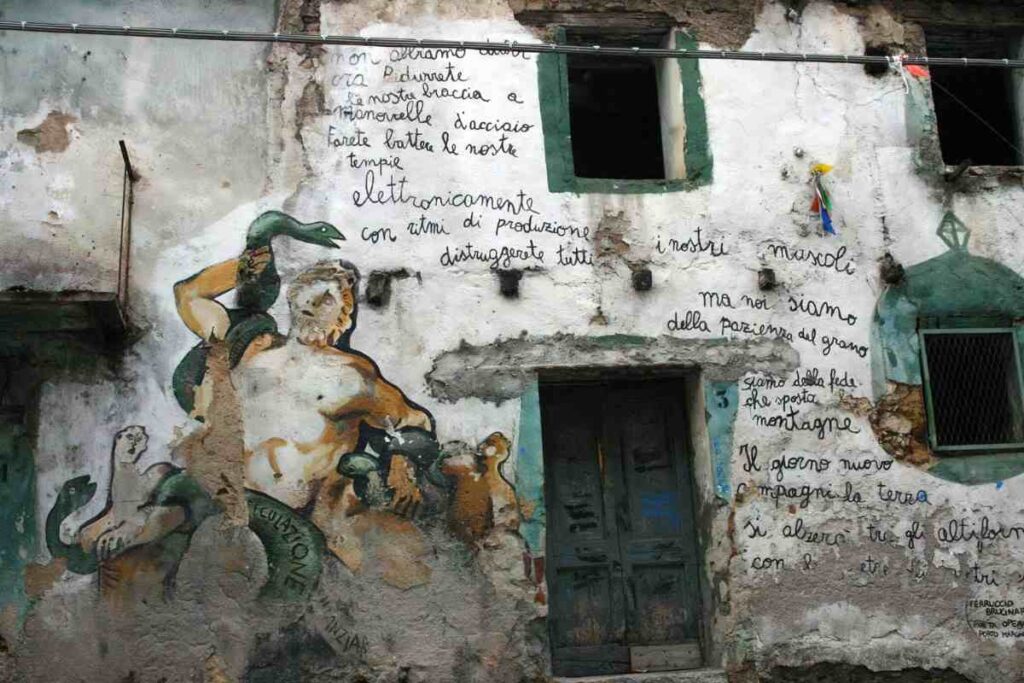 non abbiamo dubbi
ora Ridurrete
le nostre braccia a
manovelle d'acciaio
Farete battere le nostre
tempie
elettronicamente
con ritmi di produzione
distruggerete tutti
i nostri muscoli
ma noi siamo
della pazienza del grano
siamo della fede
che sposta
montagne
3
Il giorno nuovo
compagni la terra
si alzerà tra gli altiforn
con le
COLAZIONE
FERRUCCIO
BRUGNAR
POETA OPERA
PORTO MARGH